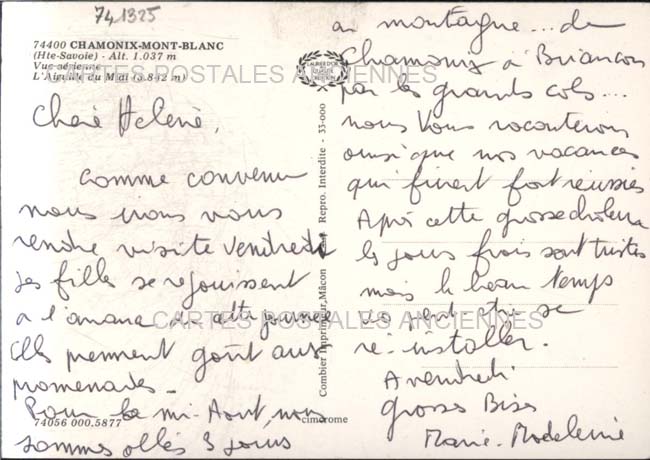 741325
74400 CHAMONIX-MONT-BLANC
(Hte-Savoie) - Alt. 1.037 m
Vue aérienne
L'Aiguille du Midi (3.842 m)
Chère Helene,
Comme convenu
nous irons vous
rendre visite Vendredi
les filles se rejouissent
a l'avance de cette journée
elles prennent goût aux
promenades -
Pour le mi-Aout, nous
sommes allés 3 jours
74056 000.5877
cimorome
Combier Imprimeur, Mâcon
Repro. Interdite - 33-000
en montagne... de
Chamonix à Briançon
par les grands cols...
nous Vous raconterons
ainsi que nos vacances
qui furent fort réussies
Après cette grosse chaleur
les jours frais sont tristes
mais le beau temps
va peut-etre se
ré-installer.
A vendredi
grosses Bises
Marie-Madeleine
CARTES POSTALES ANCIENNES
CARTES POSTALES ANCIENNES